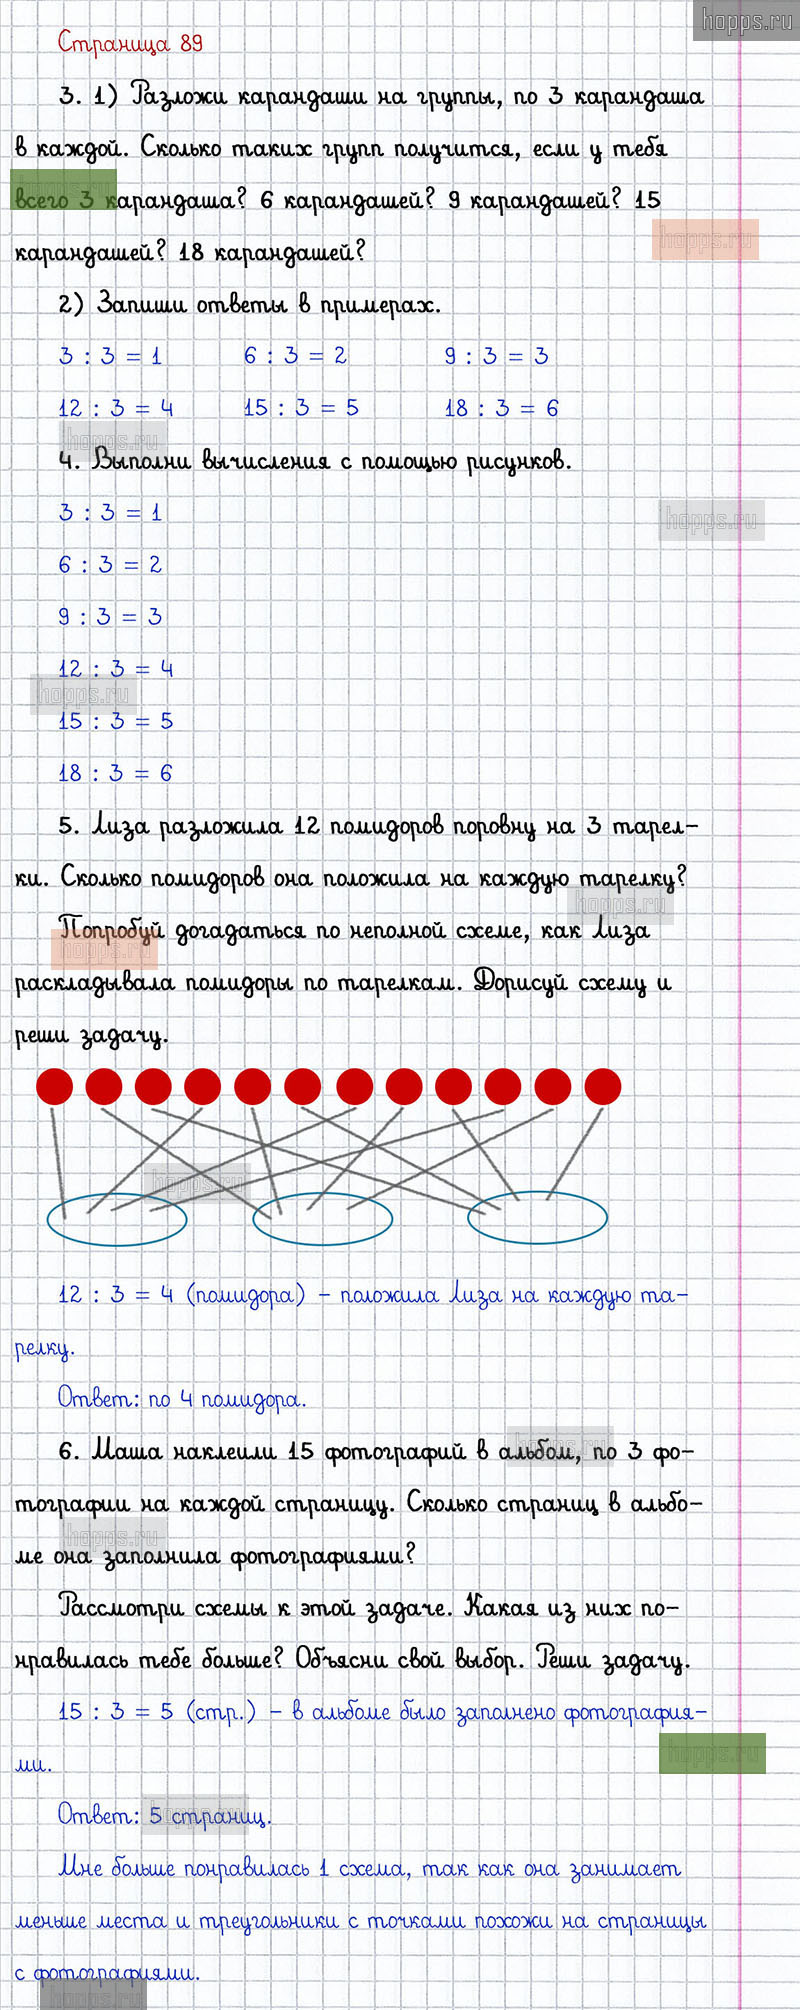 hopps.ru
Страница 89
3. 1) Разложи карандаши на группы, по 3 карандаша
в каждой. Сколько таких групп получится, если у тебя
всего 3 карандаша? 6 карандашей? 9 карандашей? 15
карандашей? 18 карандашей?
2) Запиши ответы в примерах.
3 : 3 = 1 6 : 3 = 2 9 : 3 = 3
12 : 3 = 4 15 : 3 = 5 18 : 3 = 6
4. Выполни вычисления с помощью рисунков.
3 : 3 = 1
6 : 3 = 2
9 : 3 = 3
12 : 3 = 4
15 : 3 = 5
18 : 3 = 6
5. Лиза разложила 12 помидоров поровну на 3 тарел-
ки. Сколько помидоров она положила на каждую тарелку?
Попробуй догадаться по неполной схеме, как Лиза
раскладывала помидоры по тарелкам. Дорисуй схему и
реши задачу.
12 : 3 = 4 (помидора) - положила Лиза на каждую та-
релку.
Ответ: по 4 помидора.
6. Маша наклеили 15 фотографий в альбом, по 3 фо-
тографии на каждой страницу. Сколько страниц в альбо-
ме она заполнила фотографиями?
Рассмотри схемы к этой задаче. Какая из них по-
нравилась тебе больше? Объясни свой выбор. Реши задачу.
15 : 3 = 5 (стр.) - в альбоме было заполнено фотография-
ми.
Ответ: 5 страниц.
Мне больше понравилась 1 схема, так как она занимает
меньше места и треугольники с точками похожи на страницы
с фотографиями.